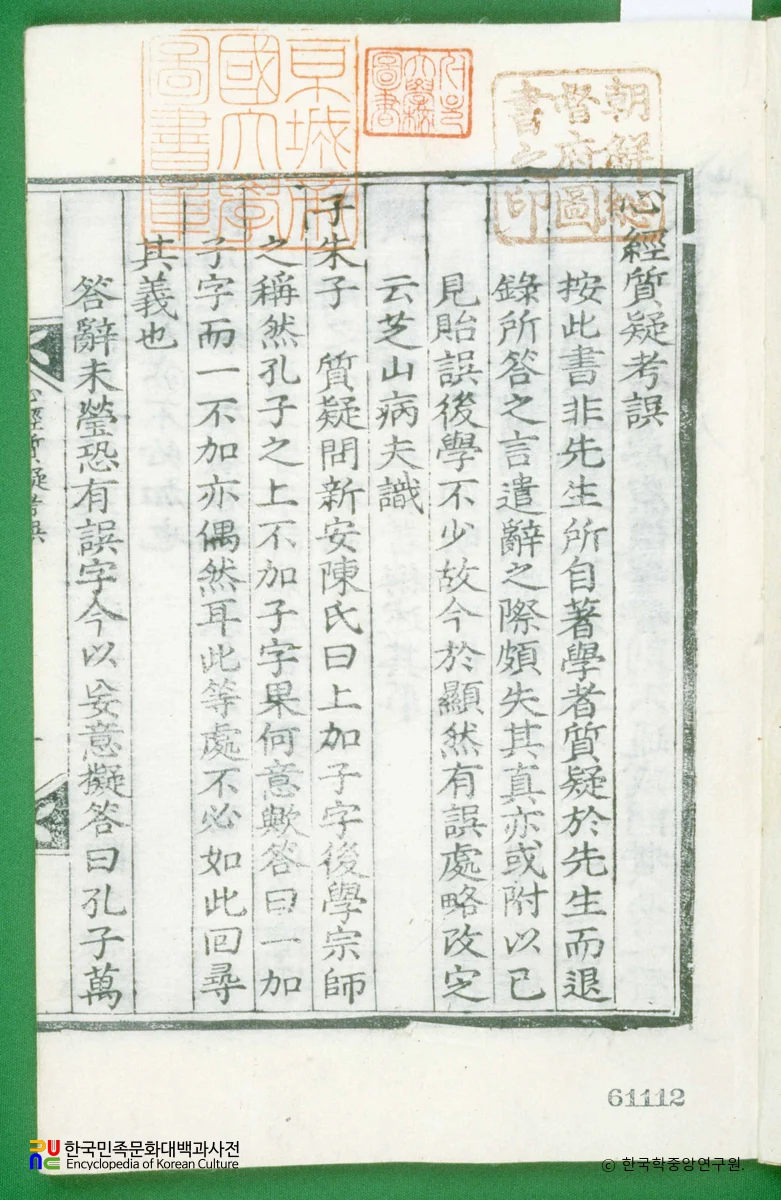 心經質疑考誤
按此書非先生所自著學者質疑於先生而退
錄所答之言遣辭之際頗失其真亦或附以已
見貽誤後學不少故今於顯然有誤處略改定
云芝山病夫識
子朱子 質疑問新安陳氏曰上加子字後學宗師
之稱然孔子之上不加子字果何意歟答曰一加
子字而一不加亦偶然耳此等處不必如此回尋
其義也
答辭未瑩恐有誤字今以妄意擬答曰孔子萬
心經質疑考誤
朝鮮總
督府圖
書之印
京城帝
國大學
圖書章
大學校
圖書
61112
한국민족문화대백과사전
Encyclopedia of Korean Culture
© 한국학중앙연구원.